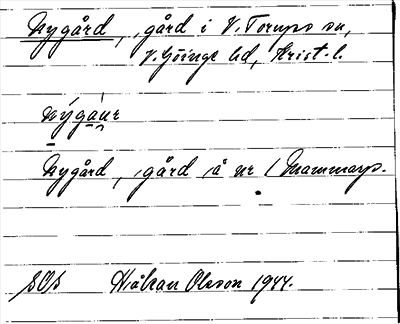 Nygård, gård i V. Torups sn,
V. Göinge hd, Krist. l.
nýgàur
Nygård, gård å nr 1 Mammarp.
SOS Håkan Olsson 1944.